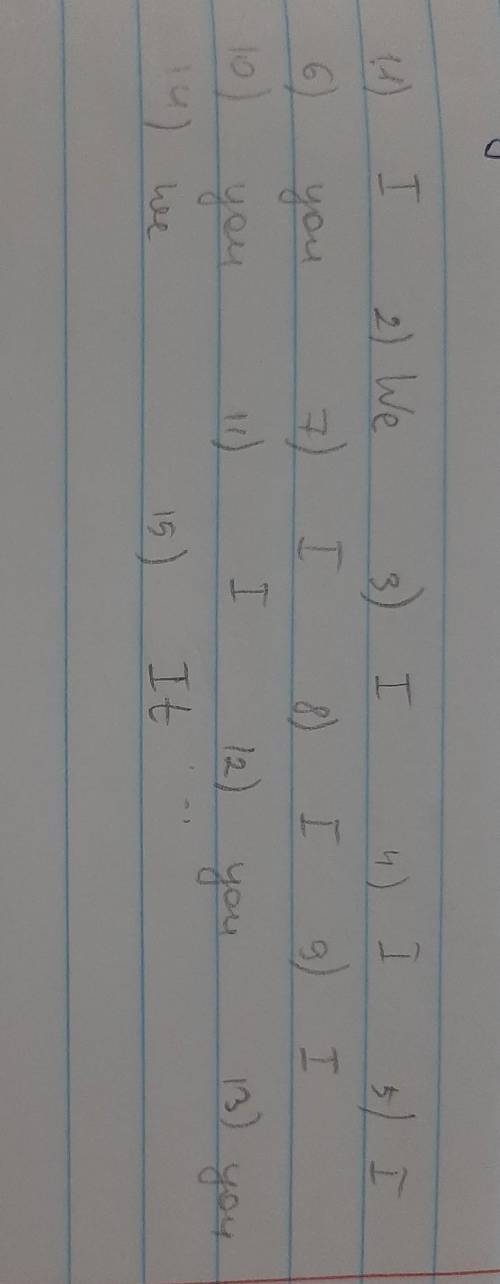 1) I 2) We 3) I 4) I 5) I
6) you 7) I 8) I 9) I
10) you 11) I 12) you 13) you
14) we 15) It